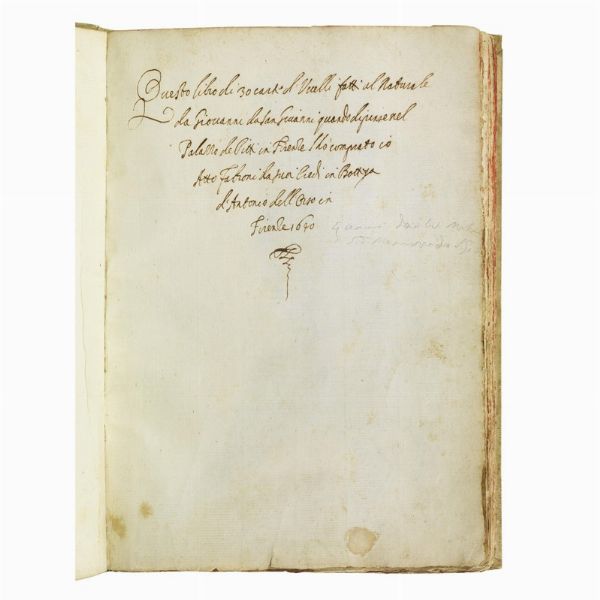 Questo libro di 30 carte d Vcelli fatti al Naturale
da Giovanni da san Giovanni quando dipinse nel
Palazzo de Pitti in Firenze l'ho comprato io
Atto Fabroni da suoi Eredi in Bottega
d'Antonio dell Orso in
Firenze 1650